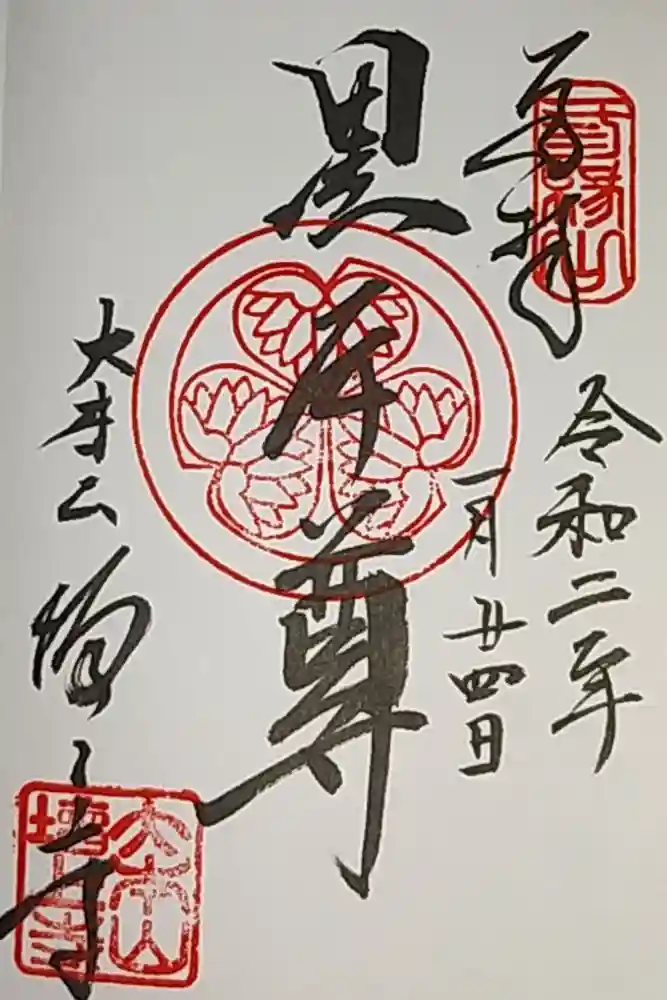 奉拝
三縁山
令和二年
一月廿四日
黒本尊
大本山
増上寺
大本山
増上寺